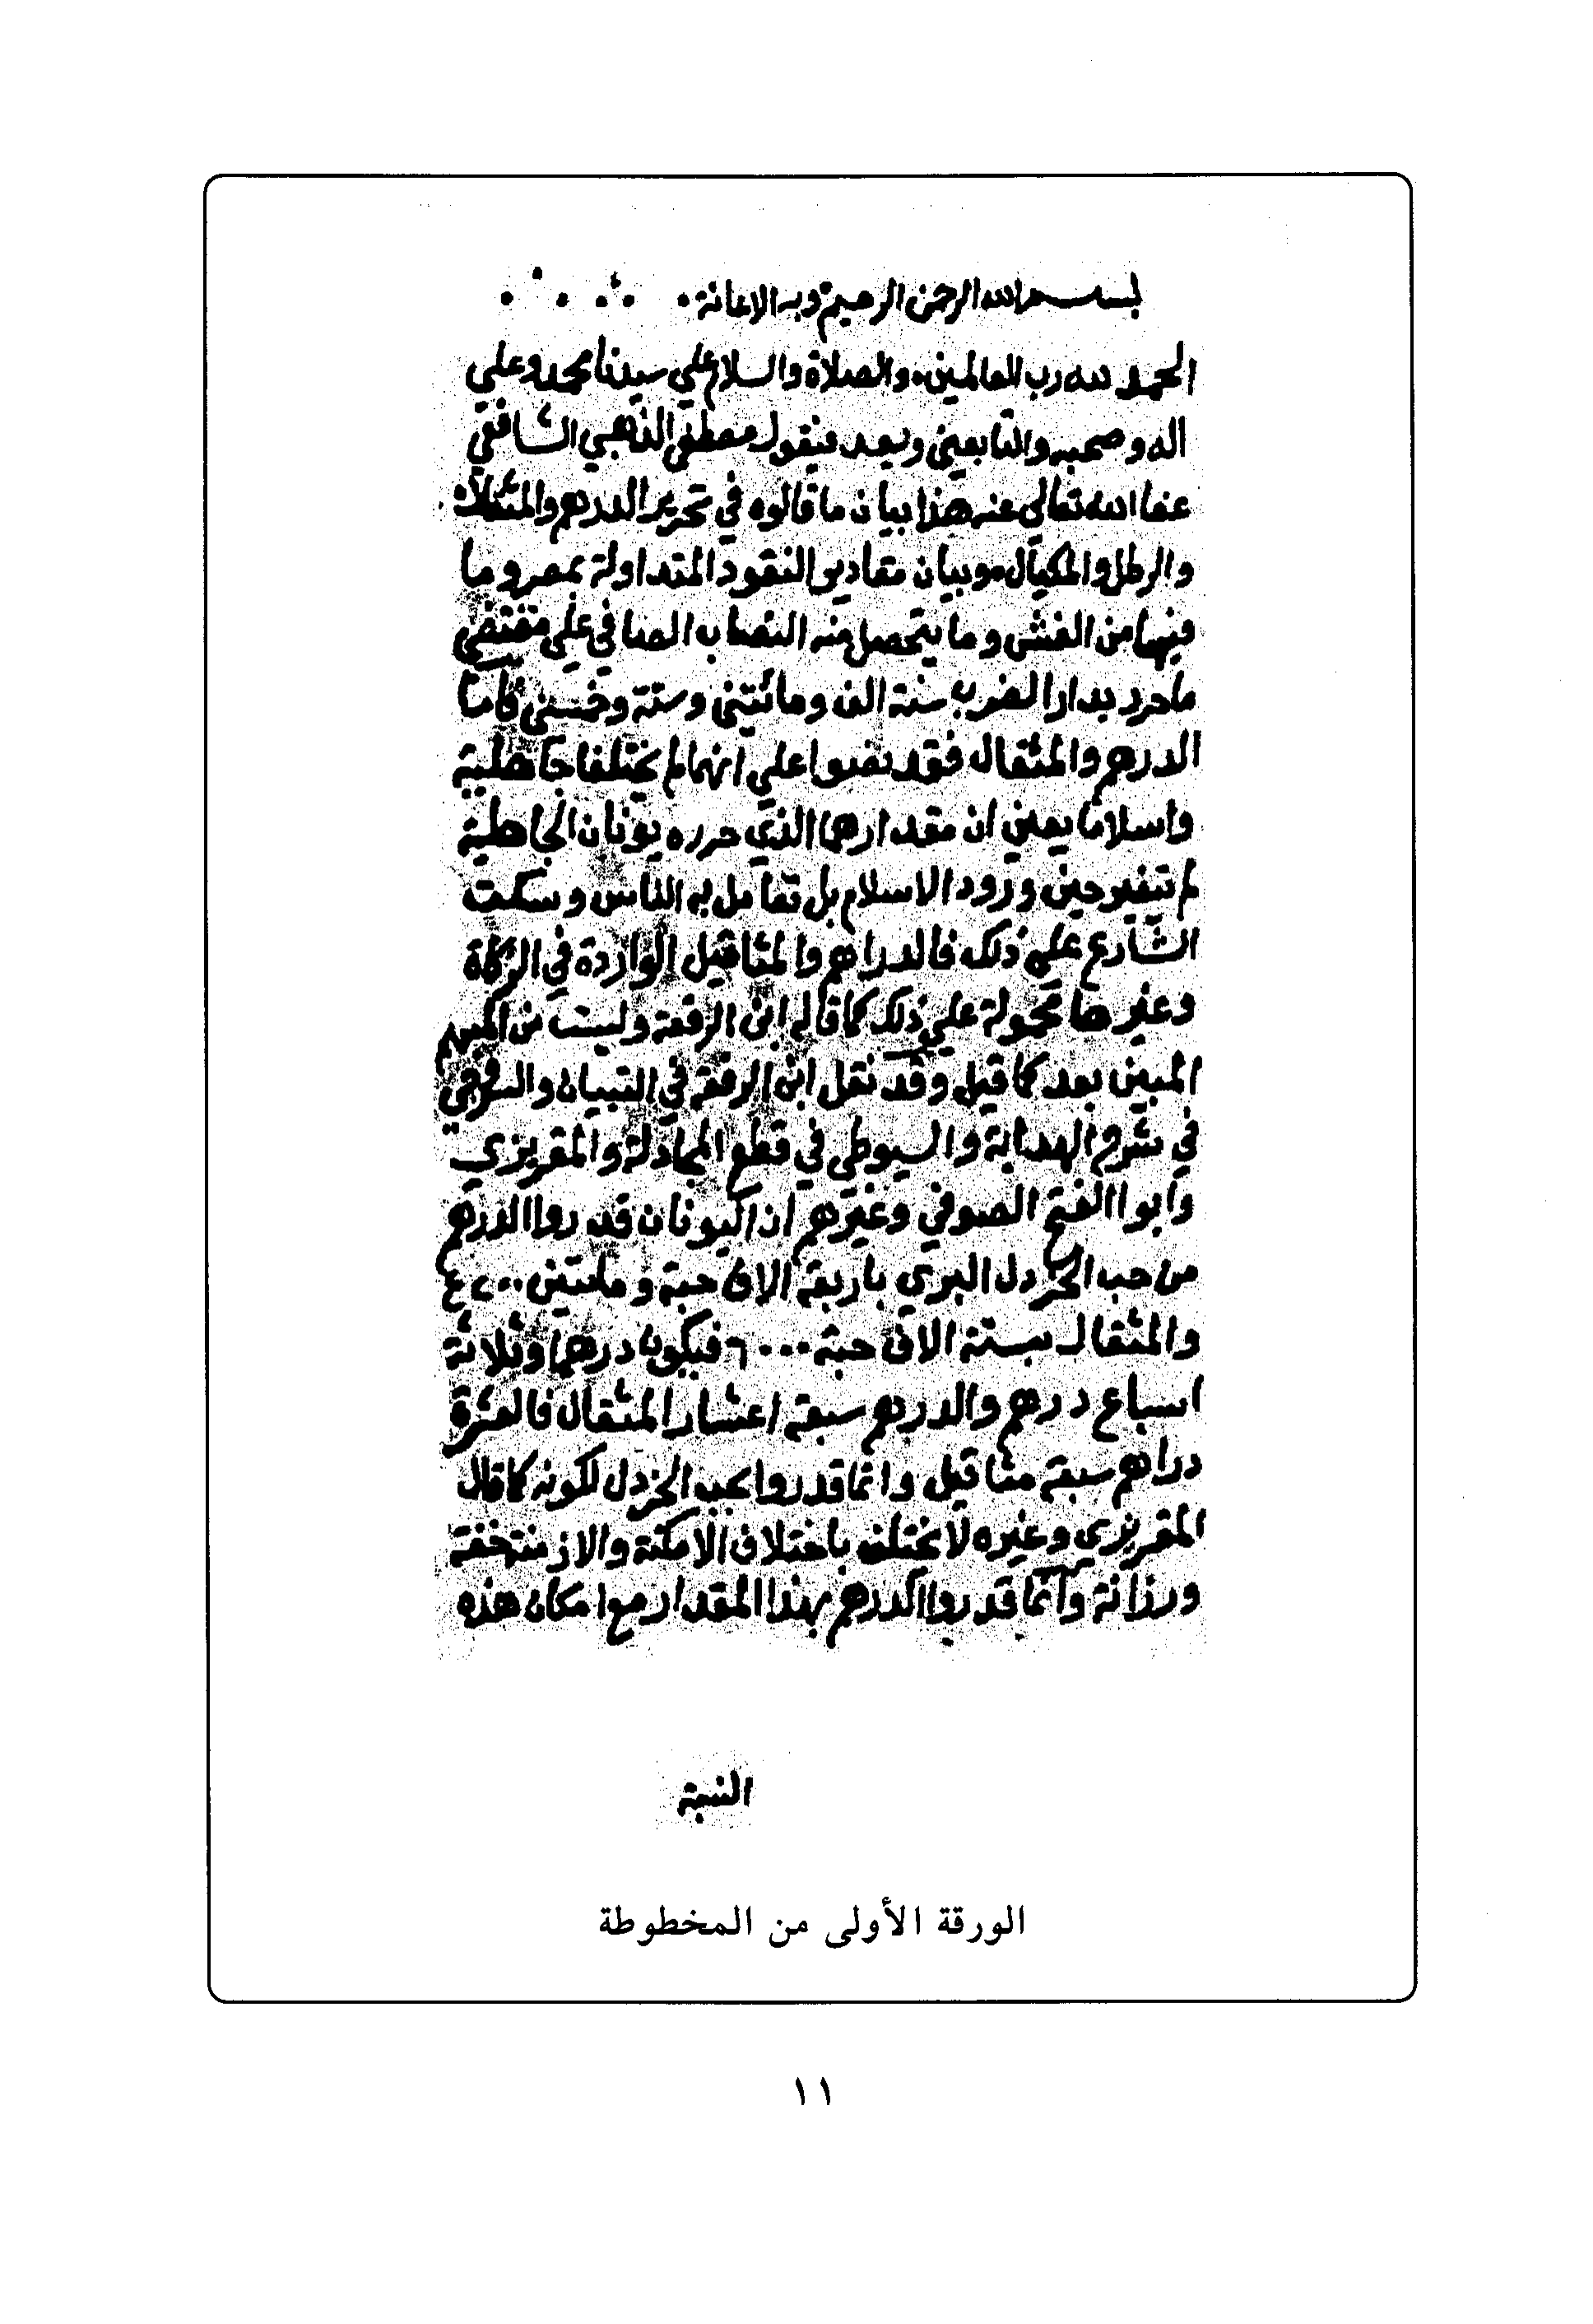 بسم الله الرحمن الرحيم وبه الاعانة
الحمد لله رب العالمين والصلاة والسلام علي سيدنا محمد وعلي
اله وصحبه والتابعين وبعد فيقول مصطفي الذهبي الشافعي
عفا الله تعالي عنه هذا بيان ما قالوه في تحرير الدرهم والمثقال
والرطل والمكيال وبيان مقادير النقود المتداولة بمصر وما
فيها من الغش وما يتحصل منه النصاب الصافي علي مقتضي
ما حرر بدار الضرب سنة الف ومائتين وستة وخمسين فاما
الدرهم والمثقال فقد نصوا علي انهما لم يختلفا جاهلية
واسلاما يعني ان مقدارهما الذي حرره يونان الجاهلية
لم تتغير حين ورود الاسلام بل تعامل به الناس وسكت
الشارع علي ذلك فالدراهم والمثاقيل الواردة في الزكاة
وغيرها محمولة علي ذلك كما قاله ابن الرفعة وليست من المبهم
المبين بعد كما قيل وقد نقل ابن الرفعة في التبيان والسروجي
في شرح الهداية والسيوطي في قطع المجادلة والمقريزي
وابوا الفتح الصوفي وغيرهم ان اليونان قدروا الدرهم
من حب الخردل البري باربعة الاف حبة ومائتين ٤٢٠٠
والمثقال بستة الاف حبة ٦٠٠٠ فيكون درهما وثلاثة
اسباع درهم والدرهم سبعة اعشار المثقال فالعشرة
دراهم سبعة مثاقيل وانما قدروا بحب الخردل لكونه كما قال
المقريزي وغيره لا يختلف باختلاف الامكنة والاز منة خفة
ورزانة وانما قدروا الدرهم بهذا المقدار مع امكان هذه
النسبة
الورقة الأولى من المخطوطة
١١